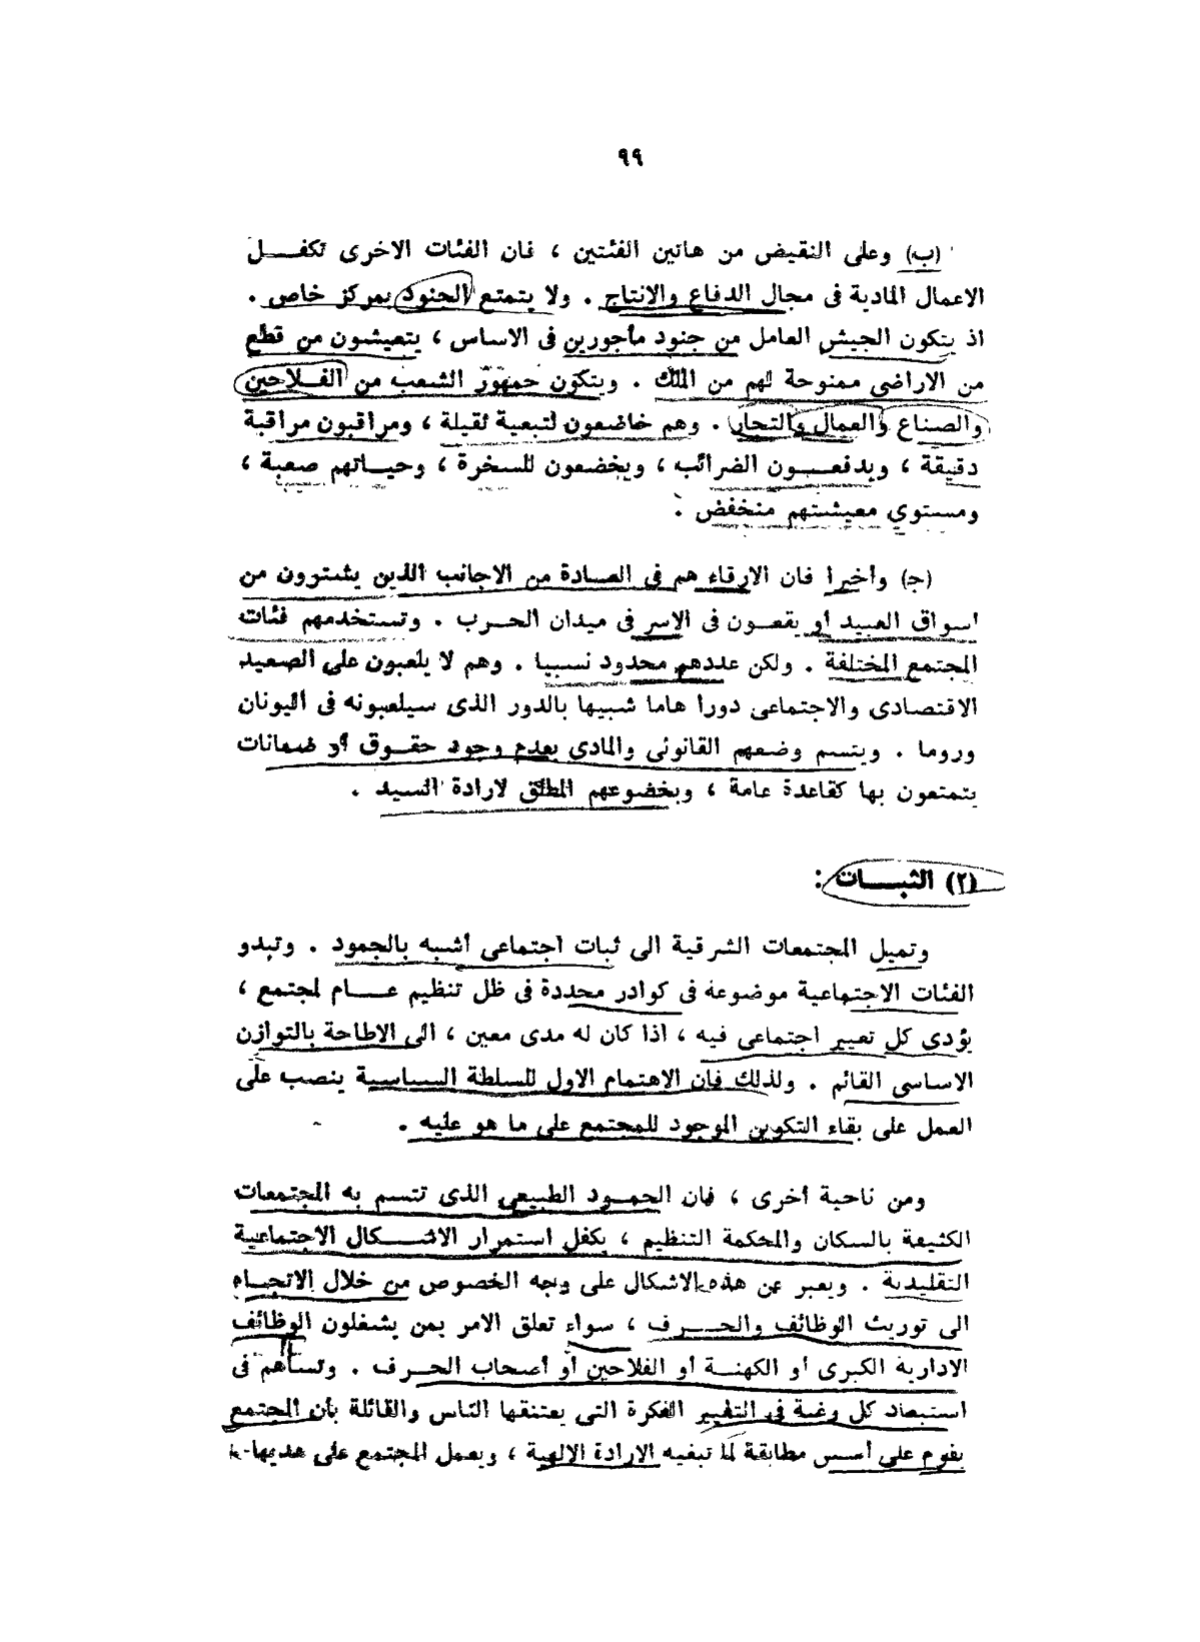 ٩٩
(ب) وعلى النقيض من هاتين الفئتين ، فان الفئات الاخرى تكفـــل
الاعمال المادية فى مجال الدفاع والانتاج . ولا يتمتع الجنود بمركز خاص .
اذ يتكون الجيش العامل من جنود مأجورين فى الاساس ، يتعيشون من قطع
من الاراضى ممنوحة لهم من الملك . ويتكون جمهور الشعب من الفـــلاحين
والصناع والعمال والتجار . وهم خاضعون لتبعية ثقيلة ، ومراقبون مراقبة
دقيقة ، ويدفعـــون الضرائب ، ويخضعون للسخرة ، وحيـــاتهم صعبة ،
ومستوي معيشتهم منخفض .
(ج) وأخيرا فان الارقاء هم فى العـــادة من الاجانب الذين يشترون من
اسواق العبيد أو يقعـــون فى الاسر فى ميدان الحـــرب . وتستخدمهم فئات
المجتمع المختلفة . ولكن عددهم محدود نسبيا . وهم لا يلعبون على الصعيد
الاقتصادى والاجتماعى دورا هاما شبيها بالدور الذى سيلعبونه فى اليونان
وروما . ويتسم وضعهم القانونى والمادى بعدم وجود حقـــوق أو ضمانات
يتمتعون بها كقاعدة عامة ، وبخضوعهم المطلق لارادة السيد .
(٢) الثبـــات :
وتميل المجتمعات الشرقية الى ثبات اجتماعى أشبه بالجمود . وتبدو
الفئات الاجتماعية موضوعة فى كوادر محددة فى ظل تنظيم عـــام لمجتمع ،
يؤدى كل تغيير اجتماعى فيه ، اذا كان له مدى معين ، الى الاطاحة بالتوازن
الاساسى القائم . ولذلك فان الاهتمام الاول للسلطة السياسية ينصب على
العمل على بقاء التكوين الموجود للمجتمع على ما هو عليه .
ومن ناحية أخرى ، فان الجمـــود الطبيعى الذى تتسم به المجتمعات
الكثيفة بالسكان والمحكمة التنظيم ، يكفل استمرار الاشـــكال الاجتماعية
التقليدية . ويعبر عن هذه الاشكال على وجه الخصوص من خلال الاتجـــاه
الى توريث الوظائف والحـــرف ، سواء تعلق الامر بمن يشغلون الوظائف
الادارية الكبرى أو الكهنـــة أو الفلاحين أو أصحاب الحـــرف . وتساهم فى
استبعاد كل رغبة فى التغيير الفكرة التى يعتنقها الناس والقائلة بأن المجتمع
يقوم على أسس مطابقة لما تبغيه الارادة الالهية ، ويعمل المجتمع على هديها